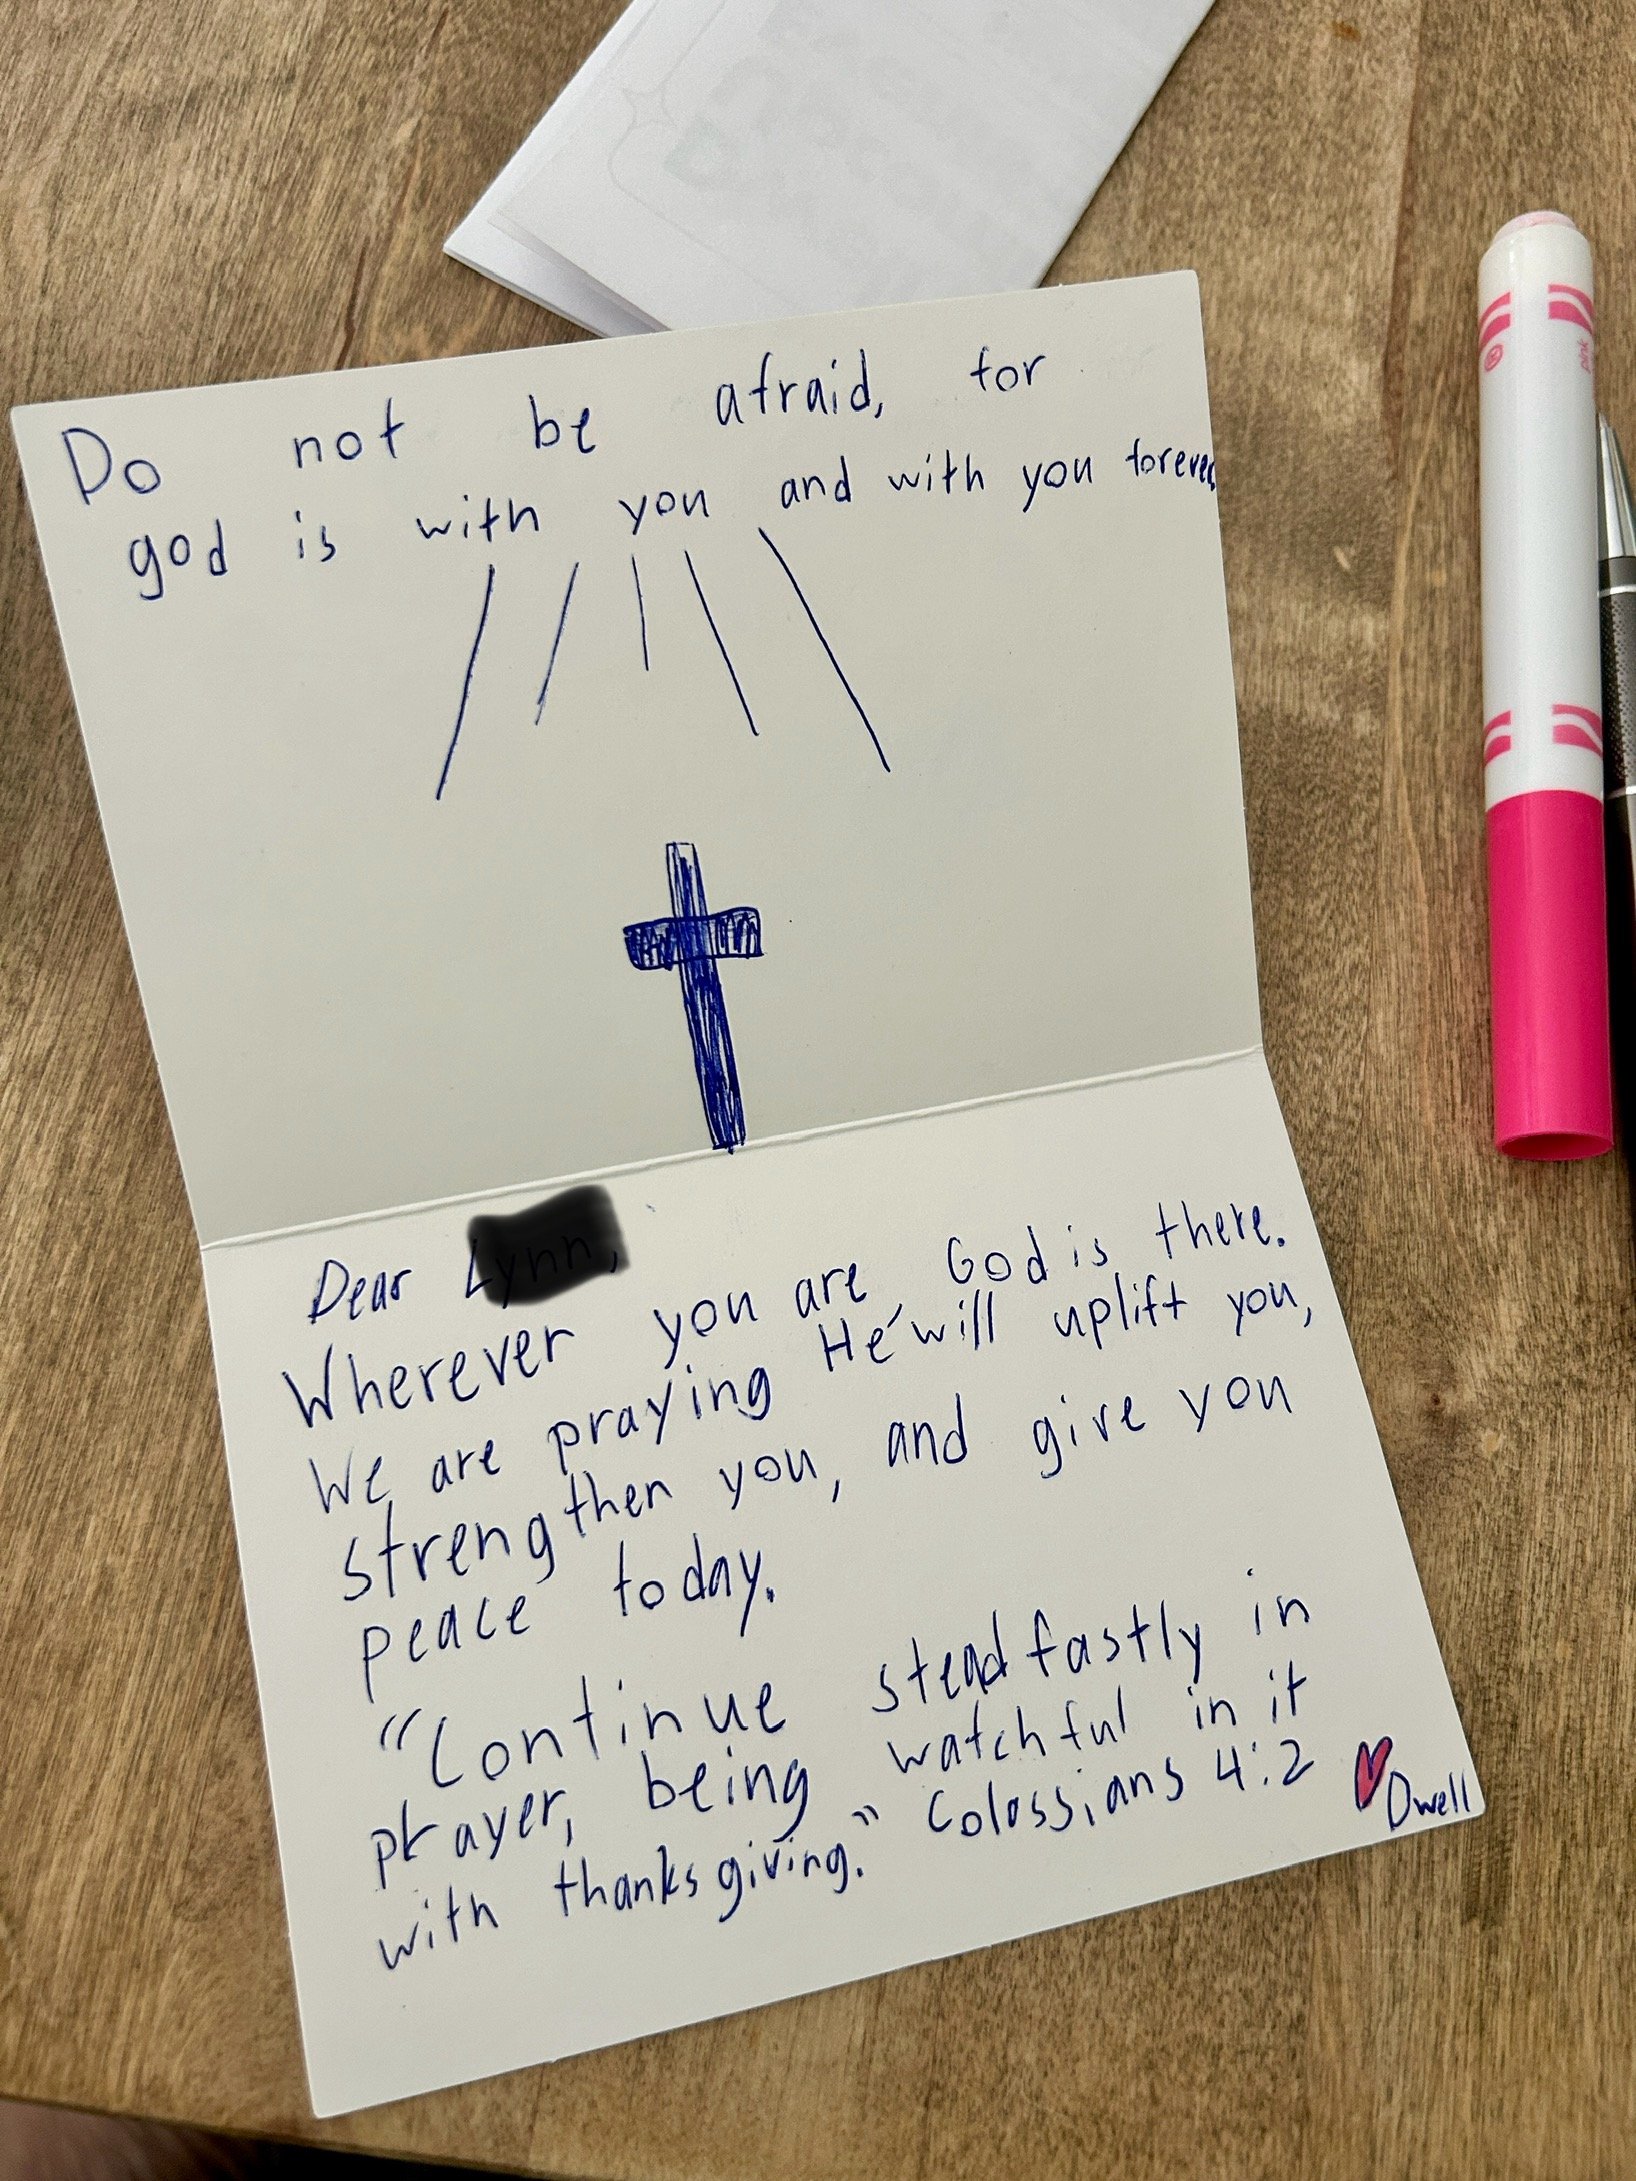 Do not be afraid, for
god is with you and with you forever.
Dear Lynn,
Wherever you are God is there.
We are praying He will uplift you,
strengthen you, and give you
peace today.
"Continue steadfastly in
prayer, being watchful in it
with thanksgiving." Colossians 4:2
Dwell
pink